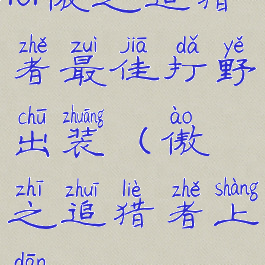 lol傲之追猎
zhě zuì jiā dǎ yě
者最佳打野
chū zhuāng ào
出装(傲
zhī zhuī liè zhě shàng
之追猎者上
dān